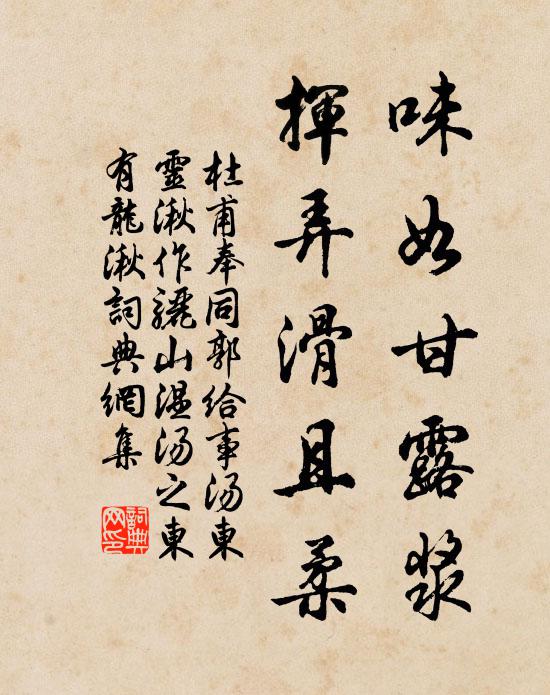 味如甘露漿
揮弄滑且柔
杜甫奉同郭給事湯東
靈湫作驪山溫湯之東
有龍湫詞典網集
詞典
网印